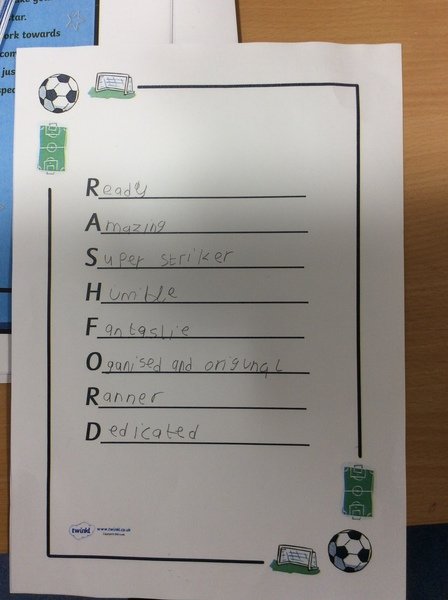 star.
ork towards
Ready
Amazing
Super striker
Humble
Fantastic
Oganised and origunal
Ranner
Dedicated
twinkl www.twinkl.co.uk